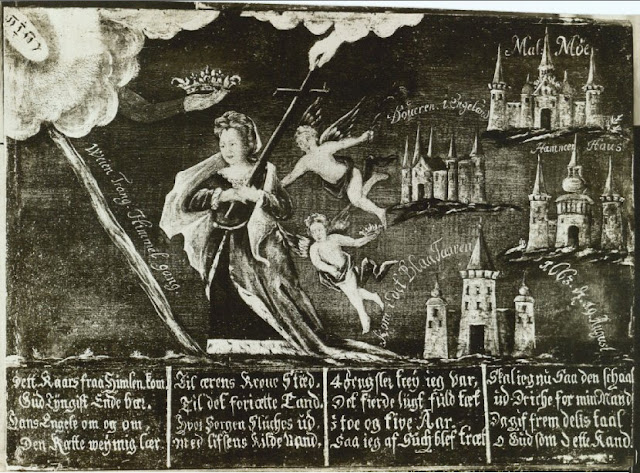 יהוה
Mal Möe
Doueren i Engeland
Hammeers Haus
Weien Trang Himmel gang
det Blaa Taaren
1663 19 August
Dett Kaars fraa Himlen kom,
Gud Tyngist Ende bær,
Hans Engele om og om,
Den Rætte wey mig lær
Til ærens Krone Stæd,
Til det forjætte Land,
Hvor Sorgen Sluches ud
med lifsens Kilde Vand.
4 Fengsler trey ieg var,
Det fierde lugt fuld
toe og tive Aar.
Saa ieg af blef træt
Skal ieg nu Saa den schaal
ud Driche for min Mand
Da gif frem delis taal
O Gud som dette Kand